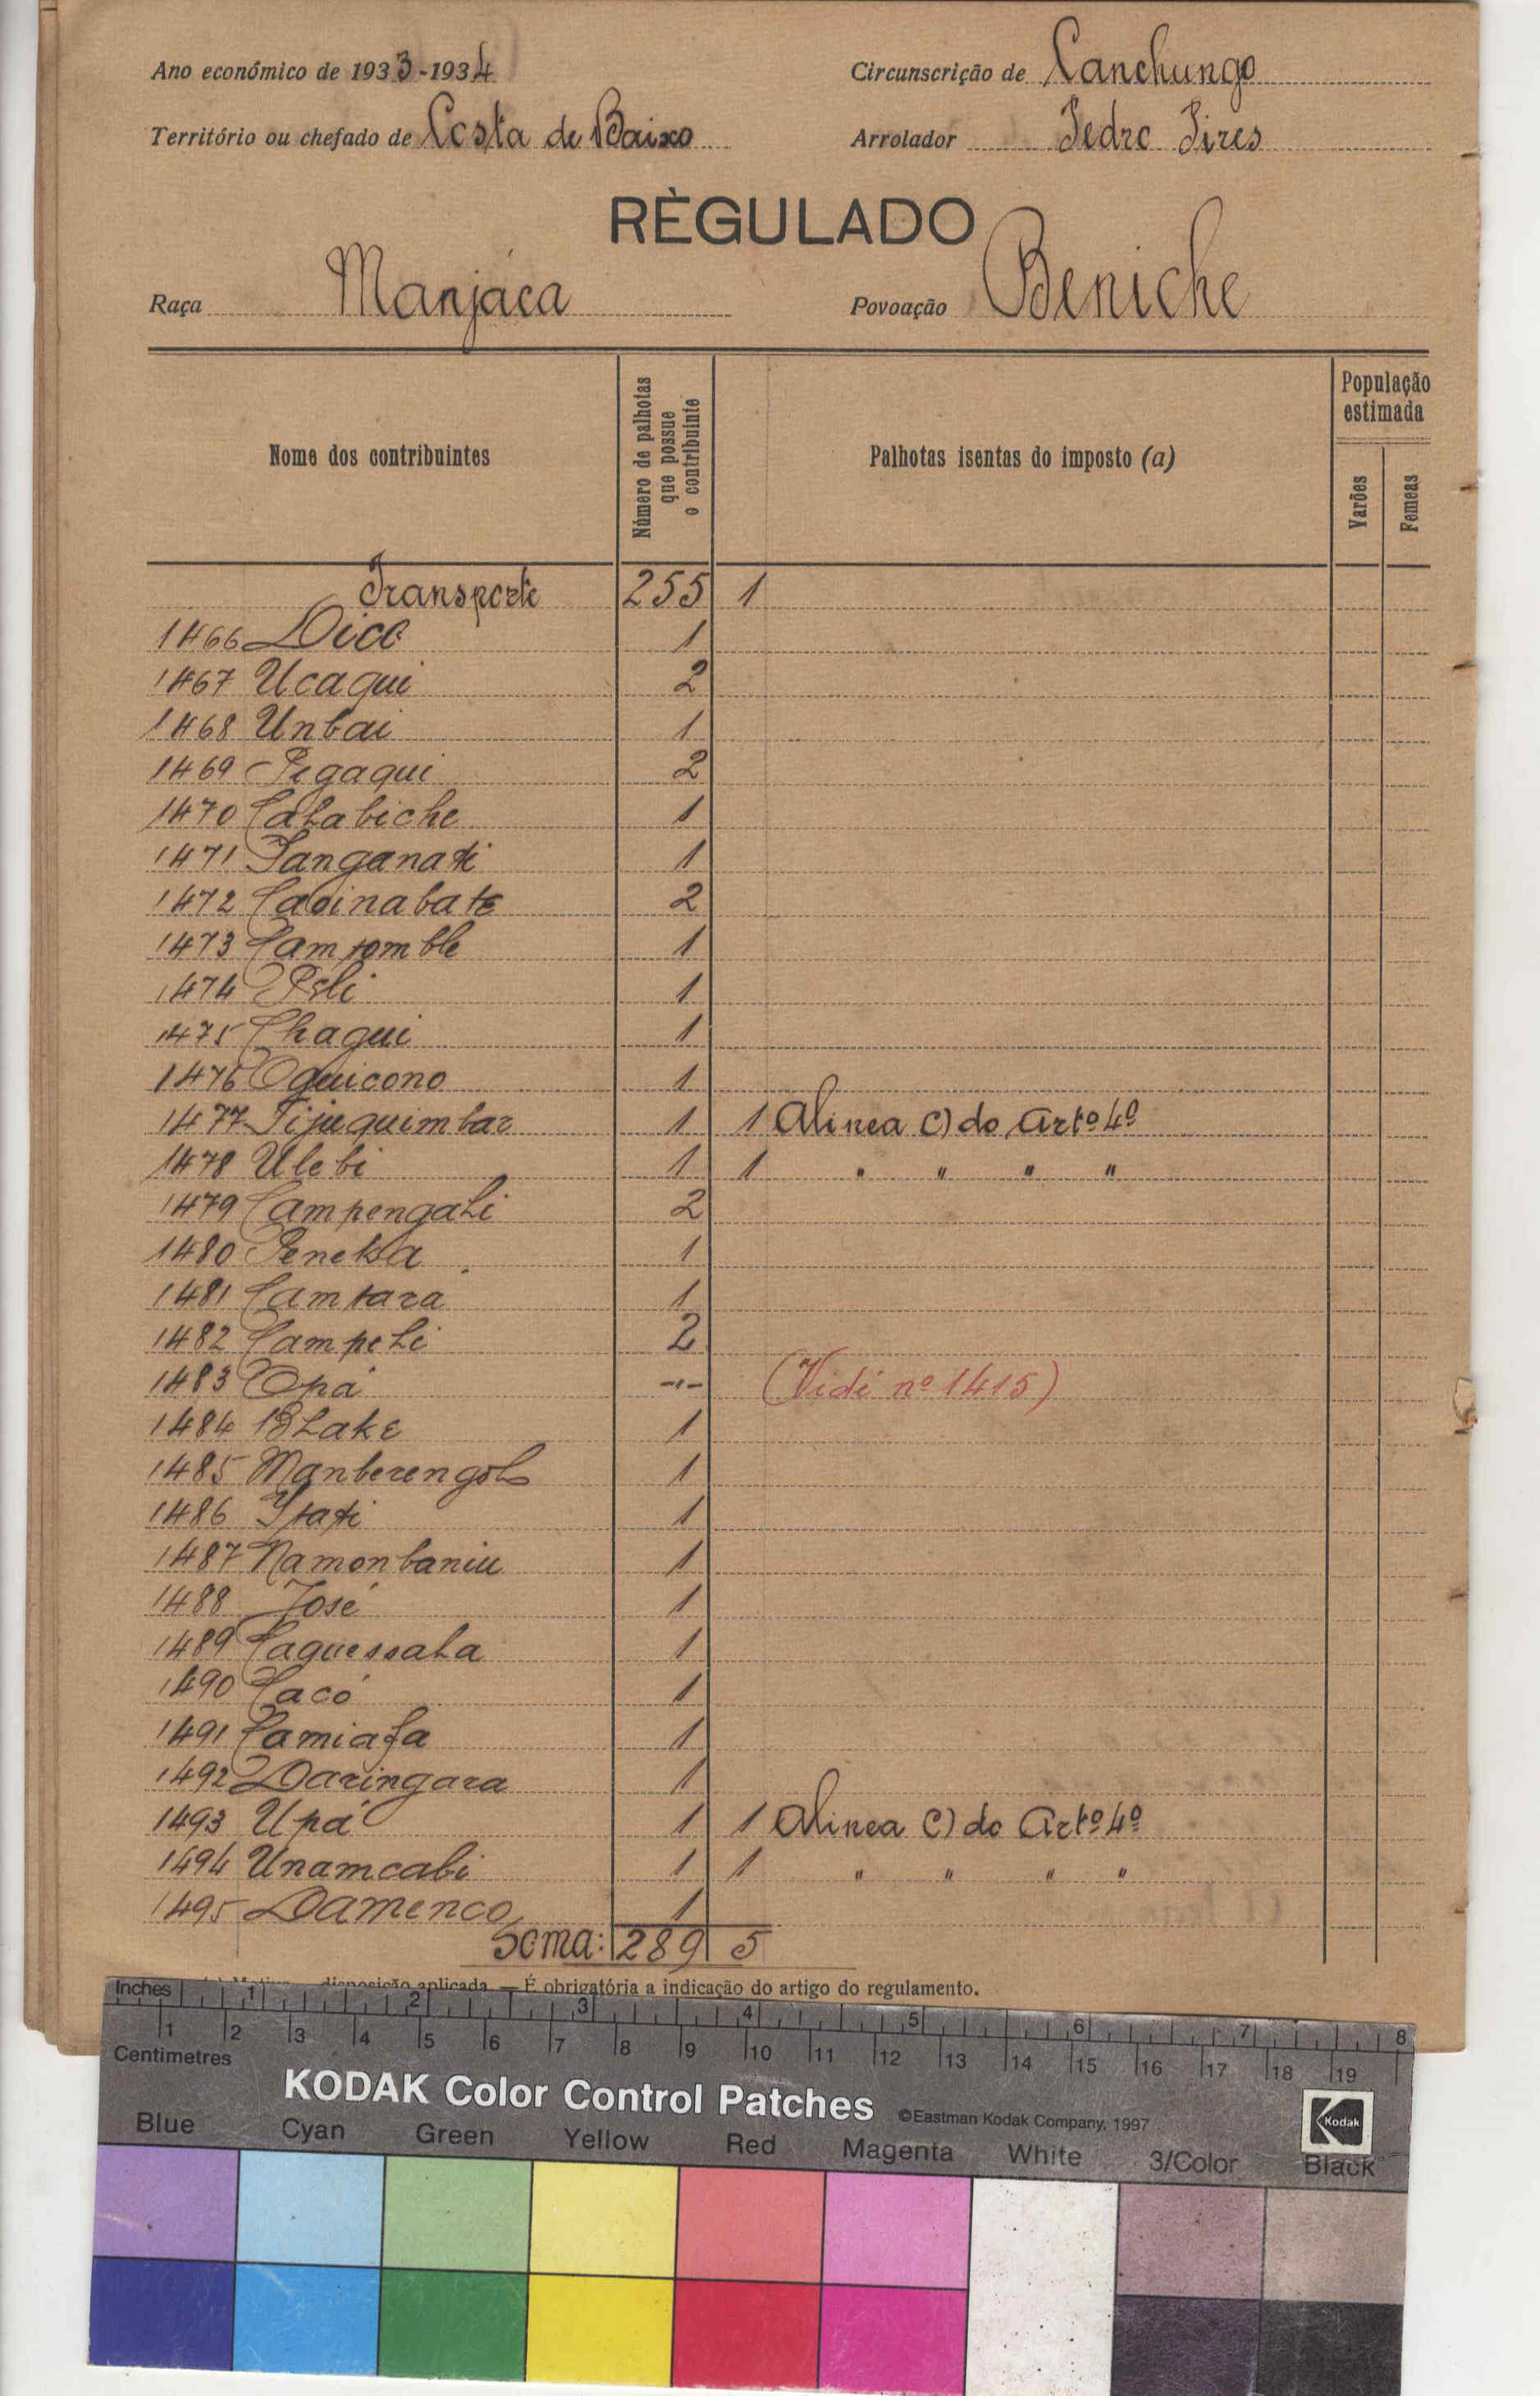 Ano económico de 1933-1934 Circunscrição de Canchungo
Território ou chefado de Costa de Baixo Arrolador Pedro Pires
RÈGULADO
Raça Manjaca Povoação Beniche
Nome dos contribuintes Número de palhotas que possue o contribuinte Palhotas isentas do imposto (a) População estimada Varões Femeas
Transporte 255 1
1466 Dico 1
1467 Ucaqui 2
1468 Unbai 1
1469 Pegaqui 2
1470 Calabiche 1
1471 Janganati 1
1472 Caoinabate 2
1473 Camtomble 1
1474 1
1475 Chaqui 1
1476 Oquicono 1
1477 Tijuquimbar 1 1 Alinea C) do Artº 4º
1478 Ulebi 1 1 " " " "
1479 Campengali 2
1480 Peneka 1
1481 Camtara 1
1482 Campeli 2
1483 Opá -"- (Vidé nº 1415)
1484 Blake 1
1485 1
1486 Itati 1
1487 Namonbaniu 1
1488 José 1
1489 Caguessala 1
1490 Cacó 1
1491 Camiafa 1
1492 Daringara 1
1493 Upá 1 1 Alinea C) do Artº 4º
1494 Unamcabi 1 1 " " " "
1495 Damenco 1
Soma: 289 5
disposição aplicada. — É obrigatória a indicação do artigo do regulamento.
Inches 1 2 3 4 5 6 7 8
1 2 3 4 5 6 7 8 9 10 11 12 13 14 15 16 17 18 19
Centimetres
KODAK Color Control Patches ©Eastman Kodak Company, 1997 Kodak
Blue Cyan Green Yellow Red Magenta White 3/Color Black